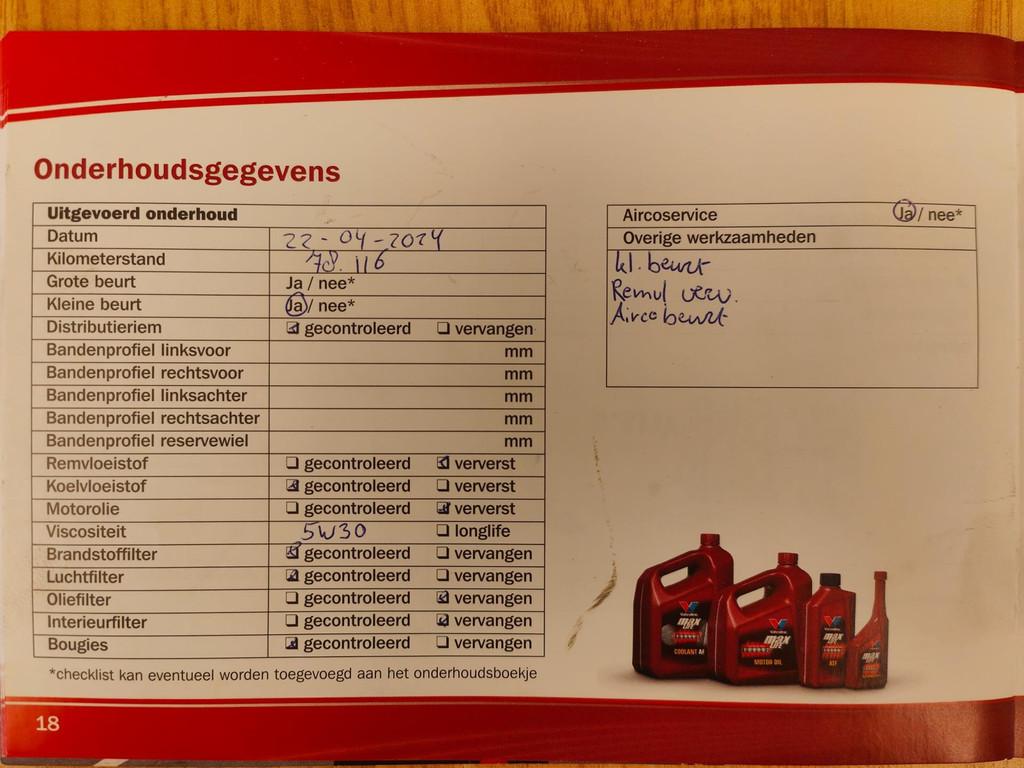 Onderhoudsgegevens
Uitgevoerd onderhoud
Datum 22-04-2024
Kilometerstand 78.116
Grote beurt Ja / nee*
Kleine beurt Ja / nee*
Distributieriem ☑ gecontroleerd ☐ vervangen
Bandenprofiel linksvoor mm
Bandenprofiel rechtsvoor mm
Bandenprofiel linksachter mm
Bandenprofiel rechtsachter mm
Bandenprofiel reservewiel mm
Remvloeistof ☐ gecontroleerd ☑ ververst
Koelvloeistof ☑ gecontroleerd ☐ ververst
Motorolie ☐ gecontroleerd ☑ ververst
Viscositeit 5W30 ☐ longlife
Brandstoffilter ☑ gecontroleerd ☐ vervangen
Luchtfilter ☑ gecontroleerd ☐ vervangen
Oliefilter ☐ gecontroleerd ☑ vervangen
Interieurfilter ☐ gecontroleerd ☑ vervangen
Bougies ☑ gecontroleerd ☐ vervangen
*checklist kan eventueel worden toegevoegd aan het onderhoudsboekje
18
Aircoservice Ja / nee*
Overige werkzaamheden
kl. beurt
Remvl verv.
Airco beurt
Valvoline
MAX
LIFE
COOLANT AF
Valvoline
MAX
LIFE
MOTOR OIL
Valvoline
MAX
LIFE
ATF
MAX
LIFE